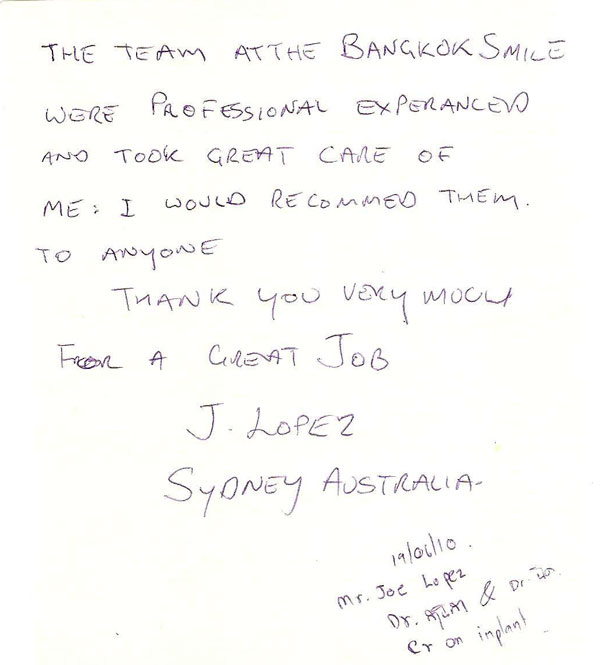 THE TEAM AT THE BANGKOK SMILE
WERE PROFESSIONAL EXPERANCED
AND TOOK GREAT CARE OF
ME: I WOULD RECOMMED THEM.
TO ANYONE
THANK YOU VERY MUCH
FOR A GREAT JOB
J. LOPEZ
SYDNEY AUSTRALIA-
19/06/10.
Mr. Joe Lopez
Dr. & Dr.
Cr on inplant